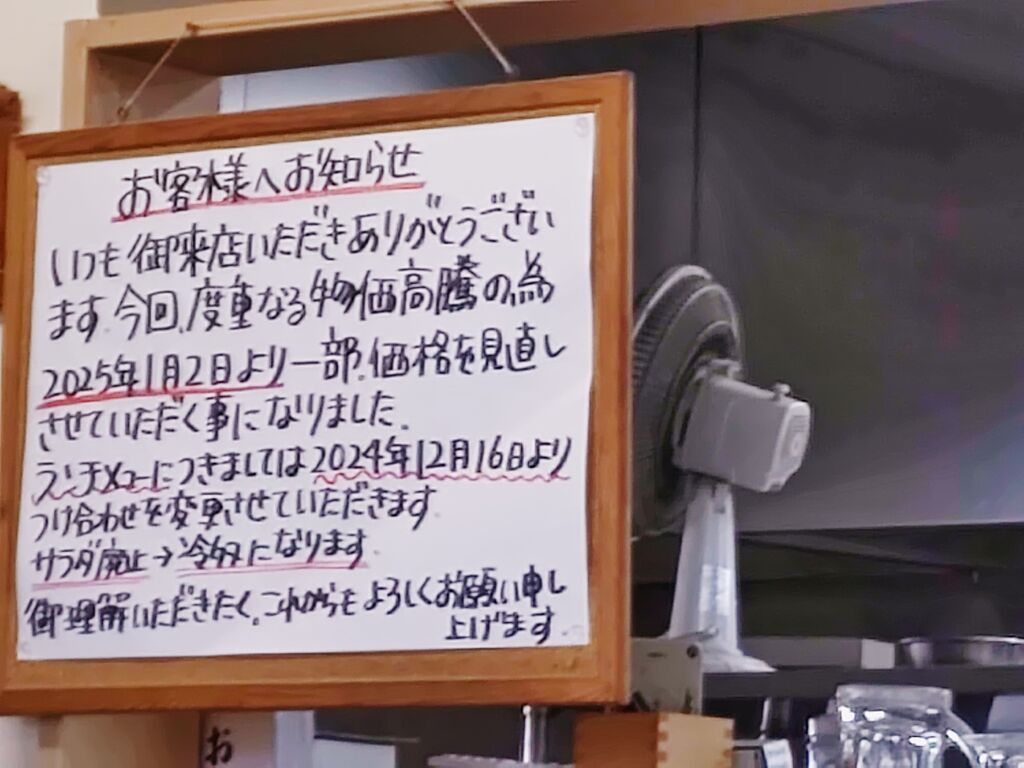 お客様へお知らせ
いつも御来店いただきありがとうござい
ます。今回、度重なる物価高騰の為
2025年1月2日より一部、価格を見直し
させていただく事になりました。
ランチメニューにつきましては2024年12月16日より
つけ合わせを変更させていただきます
サラダ廃止→冷奴になります。
御理解いただきたく、これからもよろしくお願い申し
上げます。
お